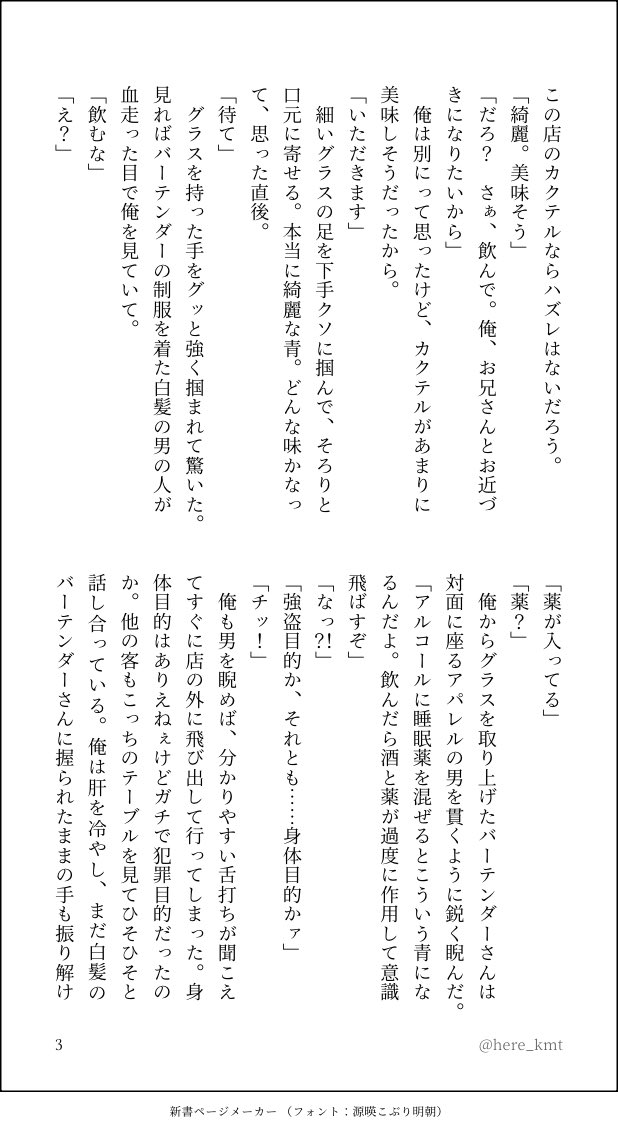 この店のカクテルならハズレはないだろう。
「綺麗。美味そう」
「だろ？　さぁ、飲んで。俺、お兄さんとお近づ
きになりたいから」
　俺は別にって思ったけど、カクテルがあまりに
美味しそうだったから。
「いただきます」
　細いグラスの足を下手クソに掴んで、そろりと
口元に寄せる。本当に綺麗な青。どんな味かなっ
て、思った直後。
「待て」
　グラスを持った手をグッと強く掴まれて驚いた。
見ればバーテンダーの制服を着た白髪の男の人が
血走った目で俺を見ていて。
「飲むな」
「え？」
「薬が入ってる」
「薬？」
　俺からグラスを取り上げたバーテンダーさんは
対面に座るアパレルの男を貫くように鋭く睨んだ。
「アルコールに睡眠薬を混ぜるとこういう青にな
るんだよ。飲んだら酒と薬が過度に作用して意識
飛ばすぞ」
「なっ?!」
「強盗目的か、それとも……身体目的かァ」
「チッ！」
　俺も男を睨めば、分かりやすい舌打ちが聞こえ
てすぐに店の外に飛び出して行ってしまった。身
体目的はありえねぇけどガチで犯罪目的だったの
か。他の客もこっちのテーブルを見てひそひそと
話し合っている。俺は肝を冷やし、まだ白髪の
バーテンダーさんに握られたままの手も振り解け
3
@here_kmt
新書ページメーカー（フォント：源暎こぶり明朝）